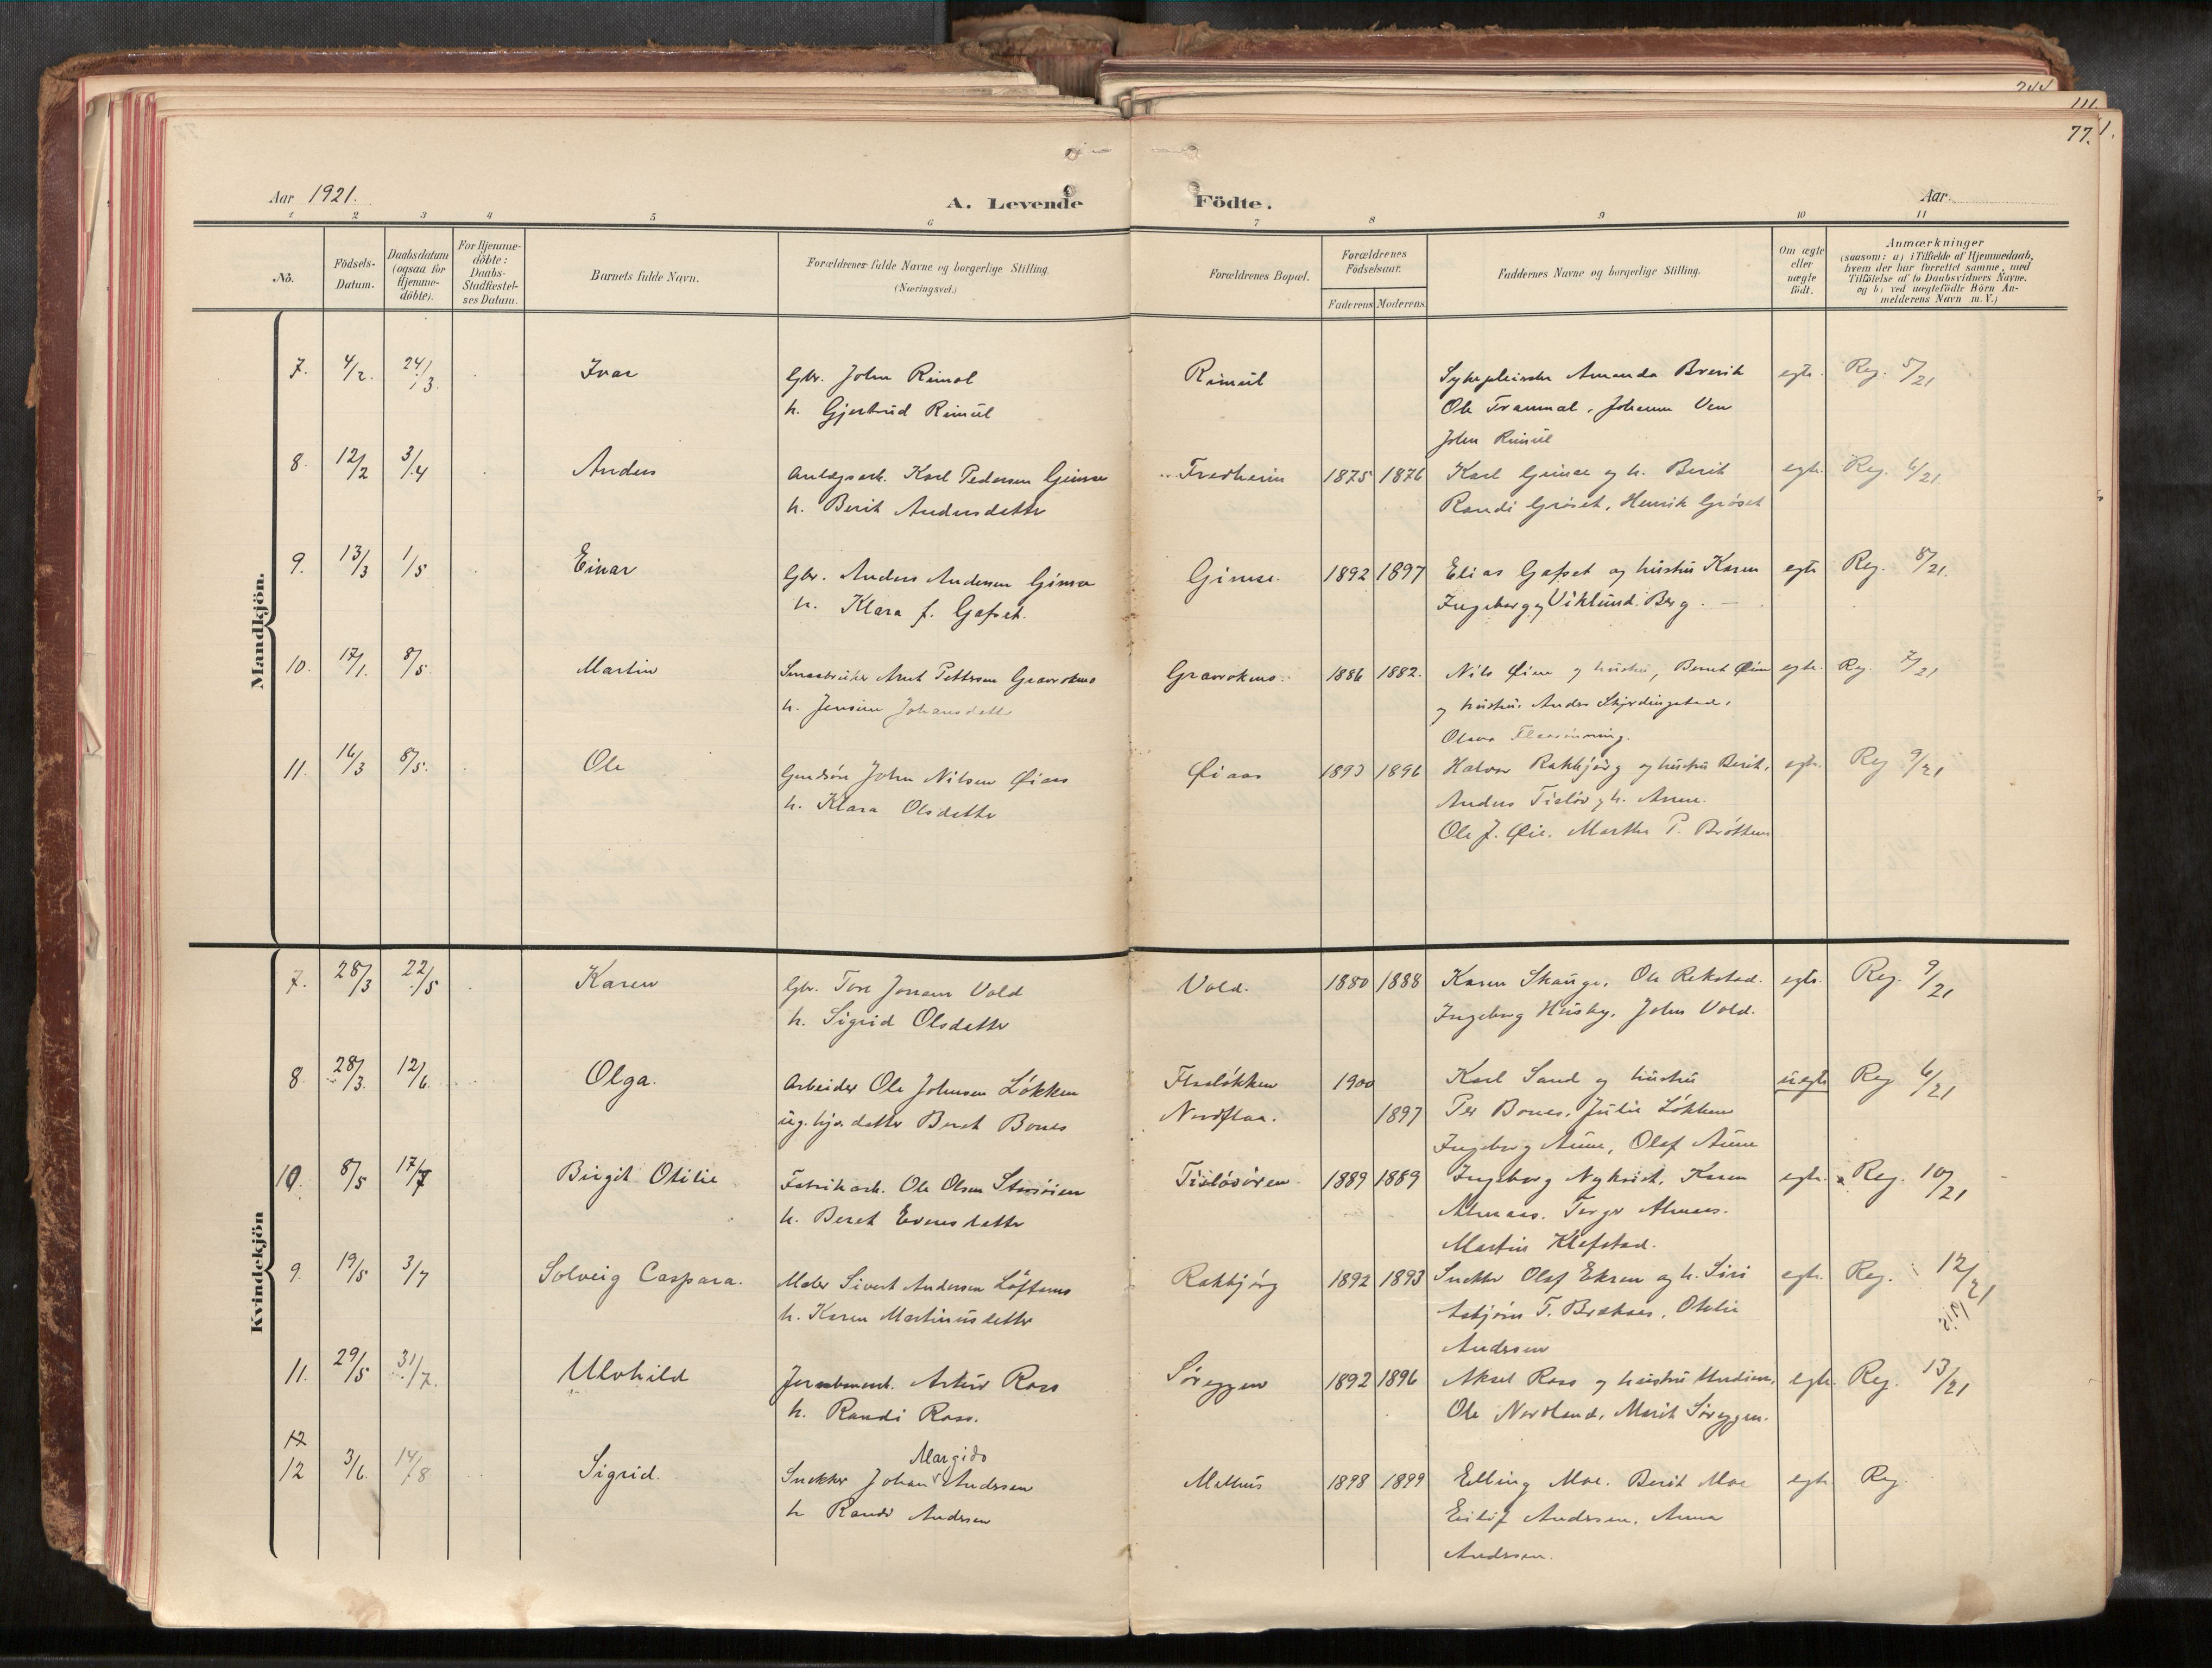 244
111.
77.
Aar 1921.
A. Levende Födte.
Aar
1 2 3 4 5 6 7 8 9 10 11
No.
Födsels-Datum.
Daabsdatum (ogsaa for Hjemme-döbte).
For Hjemme-döbte: Daabs-Stadfæstel-ses Datum.
Barnets fulde Navn.
Forældrenes fulde Navne og borgerlige Stilling. (Næringsvei.)
Forældrenes Bopæl.
Forældrenes Födselsaar.
Faderens Moderens
Faddernes Navne og borgerlige Stilling.
Om ægte eller uægte födt.
Anmærkninger
(saasom: a) i Tilfælde af Hjemmedaab, hvem der har forrettet samme, med Tilföielse af to Daabsvidners Navne. og b) ved uægtefödte Börn Anmelderens Navn m. V.)
Mandkjön.
7. 4/2. 24/3. Ivar Gbr. John Rimol Rimül Amanda egte. Reg. 5/21
h. Gjertrud Rimül Ole Trammal, Johanna Ven
John Rimül
8. 12/2 3/4 Anders Anlægsarb. Karl Pedersen Gimse Fredheim 1875 1876 Karl Gimse og h. Berit egte. Reg. 6/21.
h. Berit Andersdatter Randi Gröset, Henrik Gröset
9. 13/3 1/5 Einar Gbr. Anders Andersen Gimse Gimse. 1892 1897 Elias Gafset og hustru Karen egte Reg. 8/21.
h. Klara f. Gafset. Ingeborg Viklund. Berg.
10. 17/1. 8/5. Martin Smaabruker Arnt Pettersen Gravrokmo Gravrokmo. 1886 1882. Nils Øien og hustru, Bernt Øien egte. Reg. 7/21
h. Jensine Johansdatter og hustru. Anders Skjerdingstad,
11. 16/3 8/5. Ole Gaardsön John Nilsen Øiaas Øiaas 1893 1896 Halvor Rakbjörg og hustru Berit, egte. Reg 9/21
h. Klara Olsdatter Anders og h. Anne.
Ole J. Øie. Marthe P. Bröttem
Kvindekjön
7. 28/3 22/5 Karen Gbr. Tore Jonsen Vold Vold. 1880 1888 Karen Skauge, Ole Rekstad. egte. Reg. 9/21
h. Sigrid Olsdatter Ingeborg Husby, John Vold.
8 28/3. 12/6 Olga. Arbeider Ole Johnsen Lökken Flaalökken 1900 Karl Sand og hustru uegte Reg 6/21
ug. hjv. datter Beret Bones Nordflaa. 1897 Per Bones, Julie Lökken
Ingeborg Aune, Olaf Aune
10. 8/5 17/7 Birgit Otilie Fabrikarb. Ole Olsen 1889 1889 Ingeborg Nykvist, Karen egte. Reg. 10/21
h. Beret Evensdatter Almaas. Almaas.
Martin Klefstad.
9. 19/5 3/7 Solveig Caspara. Maler Sivert Andersen Löftamo Rakbjörg 1892 1893 Snekker Olaf Ekren og h. Siri egte. Reg. 12/21
h. Karen Martinusdatter Asbjörn T. Brækaas, Otelie
Andersen
11. 29/5 31/7. Ulvhild Jernbanearb. Artur Ross Söreggen 1892 1896 Aksel Ross og hustru egte. Reg. 13/21
h. Randi Ross. Ole Nordland, Marit Söreggen.
12
12 3/6. 14/8 Sigrid. Snekker Johan Margido Andersen Melhus 1898 1899 Elling Moe. Berit Moe egte Reg.
h Randi Andersen Eilif Andersen, Anna
Andersen.